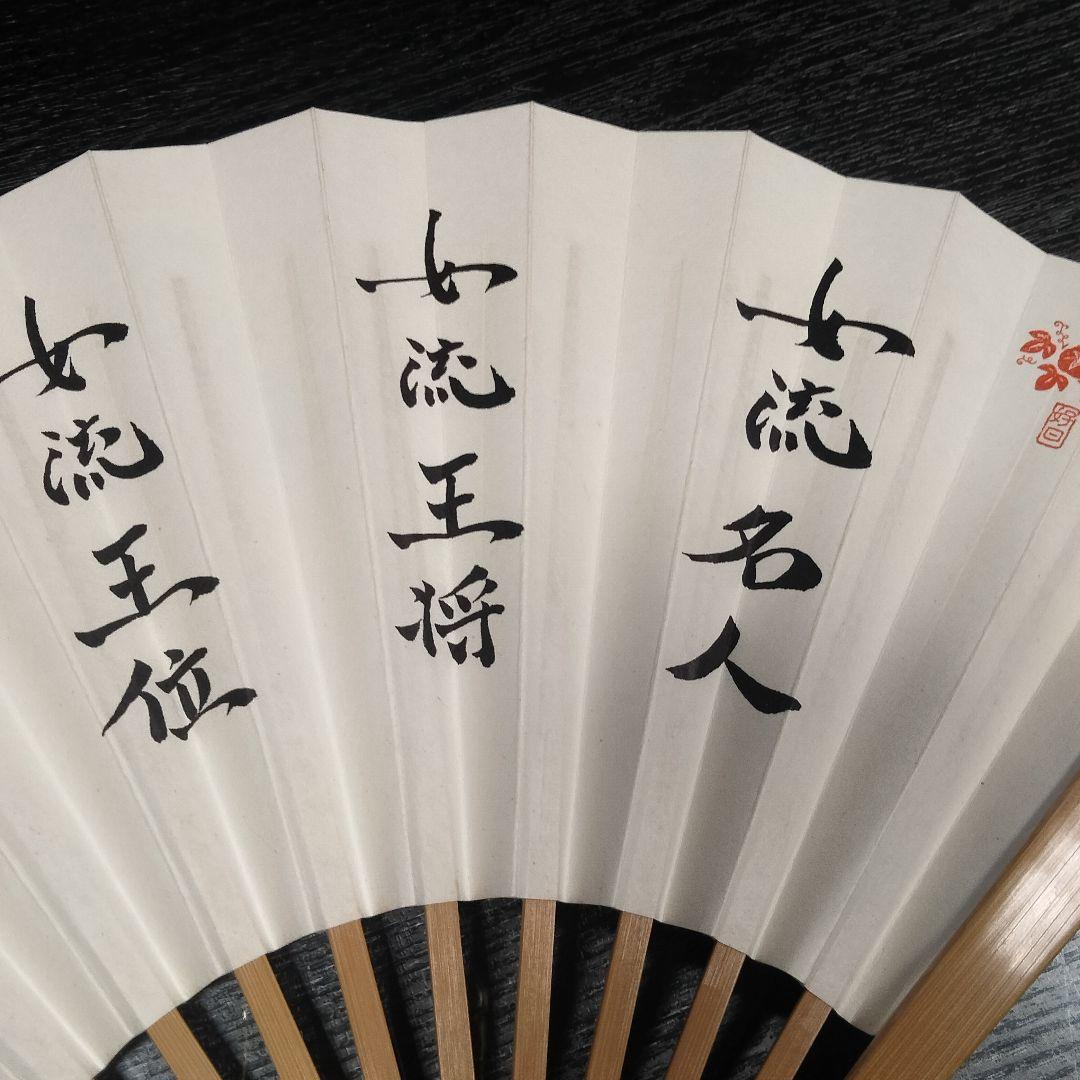 好日
女流名人
女流王将
女流王位